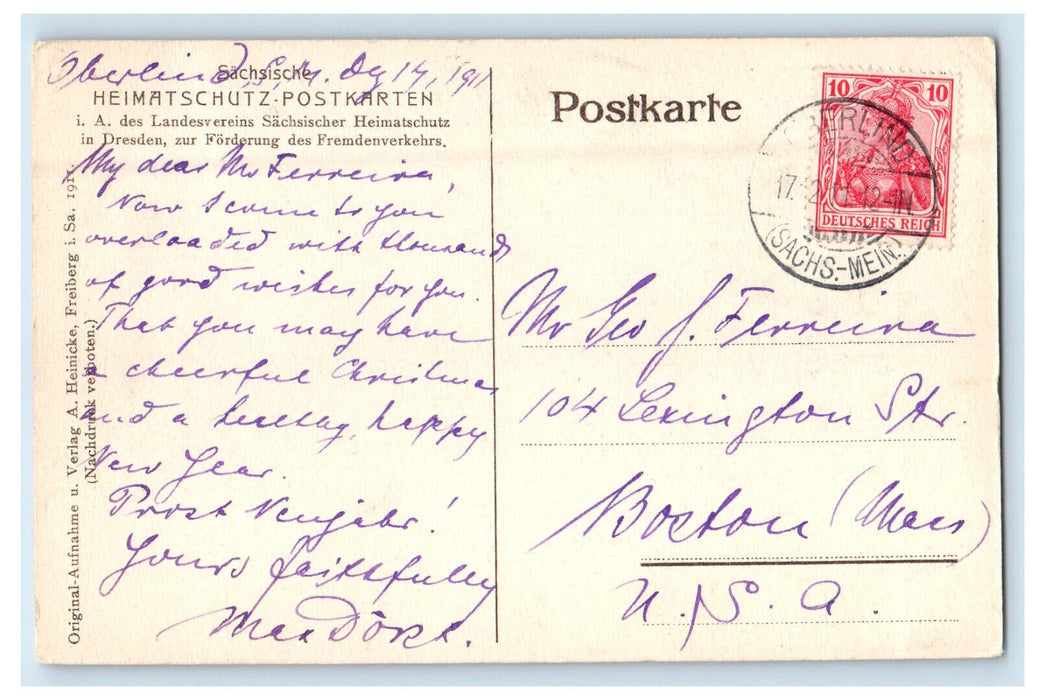 Oberlind, S. M. 17, 1911
Sächsische
HEIMATSCHUTZ-POSTKARTEN
i. A. des Landesvereins Sächsischer Heimatschutz
in Dresden, zur Förderung des Fremdenverkehrs.
My dear Mr Ferreira,
Now I come to you
overloaded with thousands
of good wishes for you.
That you may have
a cheerful Christmas
and a happy
New Year.
Prost Neujahr!
Yours faithfully
Max
Original-Aufnahme u. Verlag A. Heinicke, Freiberg i. Sa. 1911
(Nachdruck verboten.)
Postkarte
10 10
DEUTSCHES REICH
OBERLIND
17.12 12-1N
(SACHS.-MEIN.)
Mr Geo J. Ferreira
104 Lexington Str.
Boston (Mass)
U. S. A.